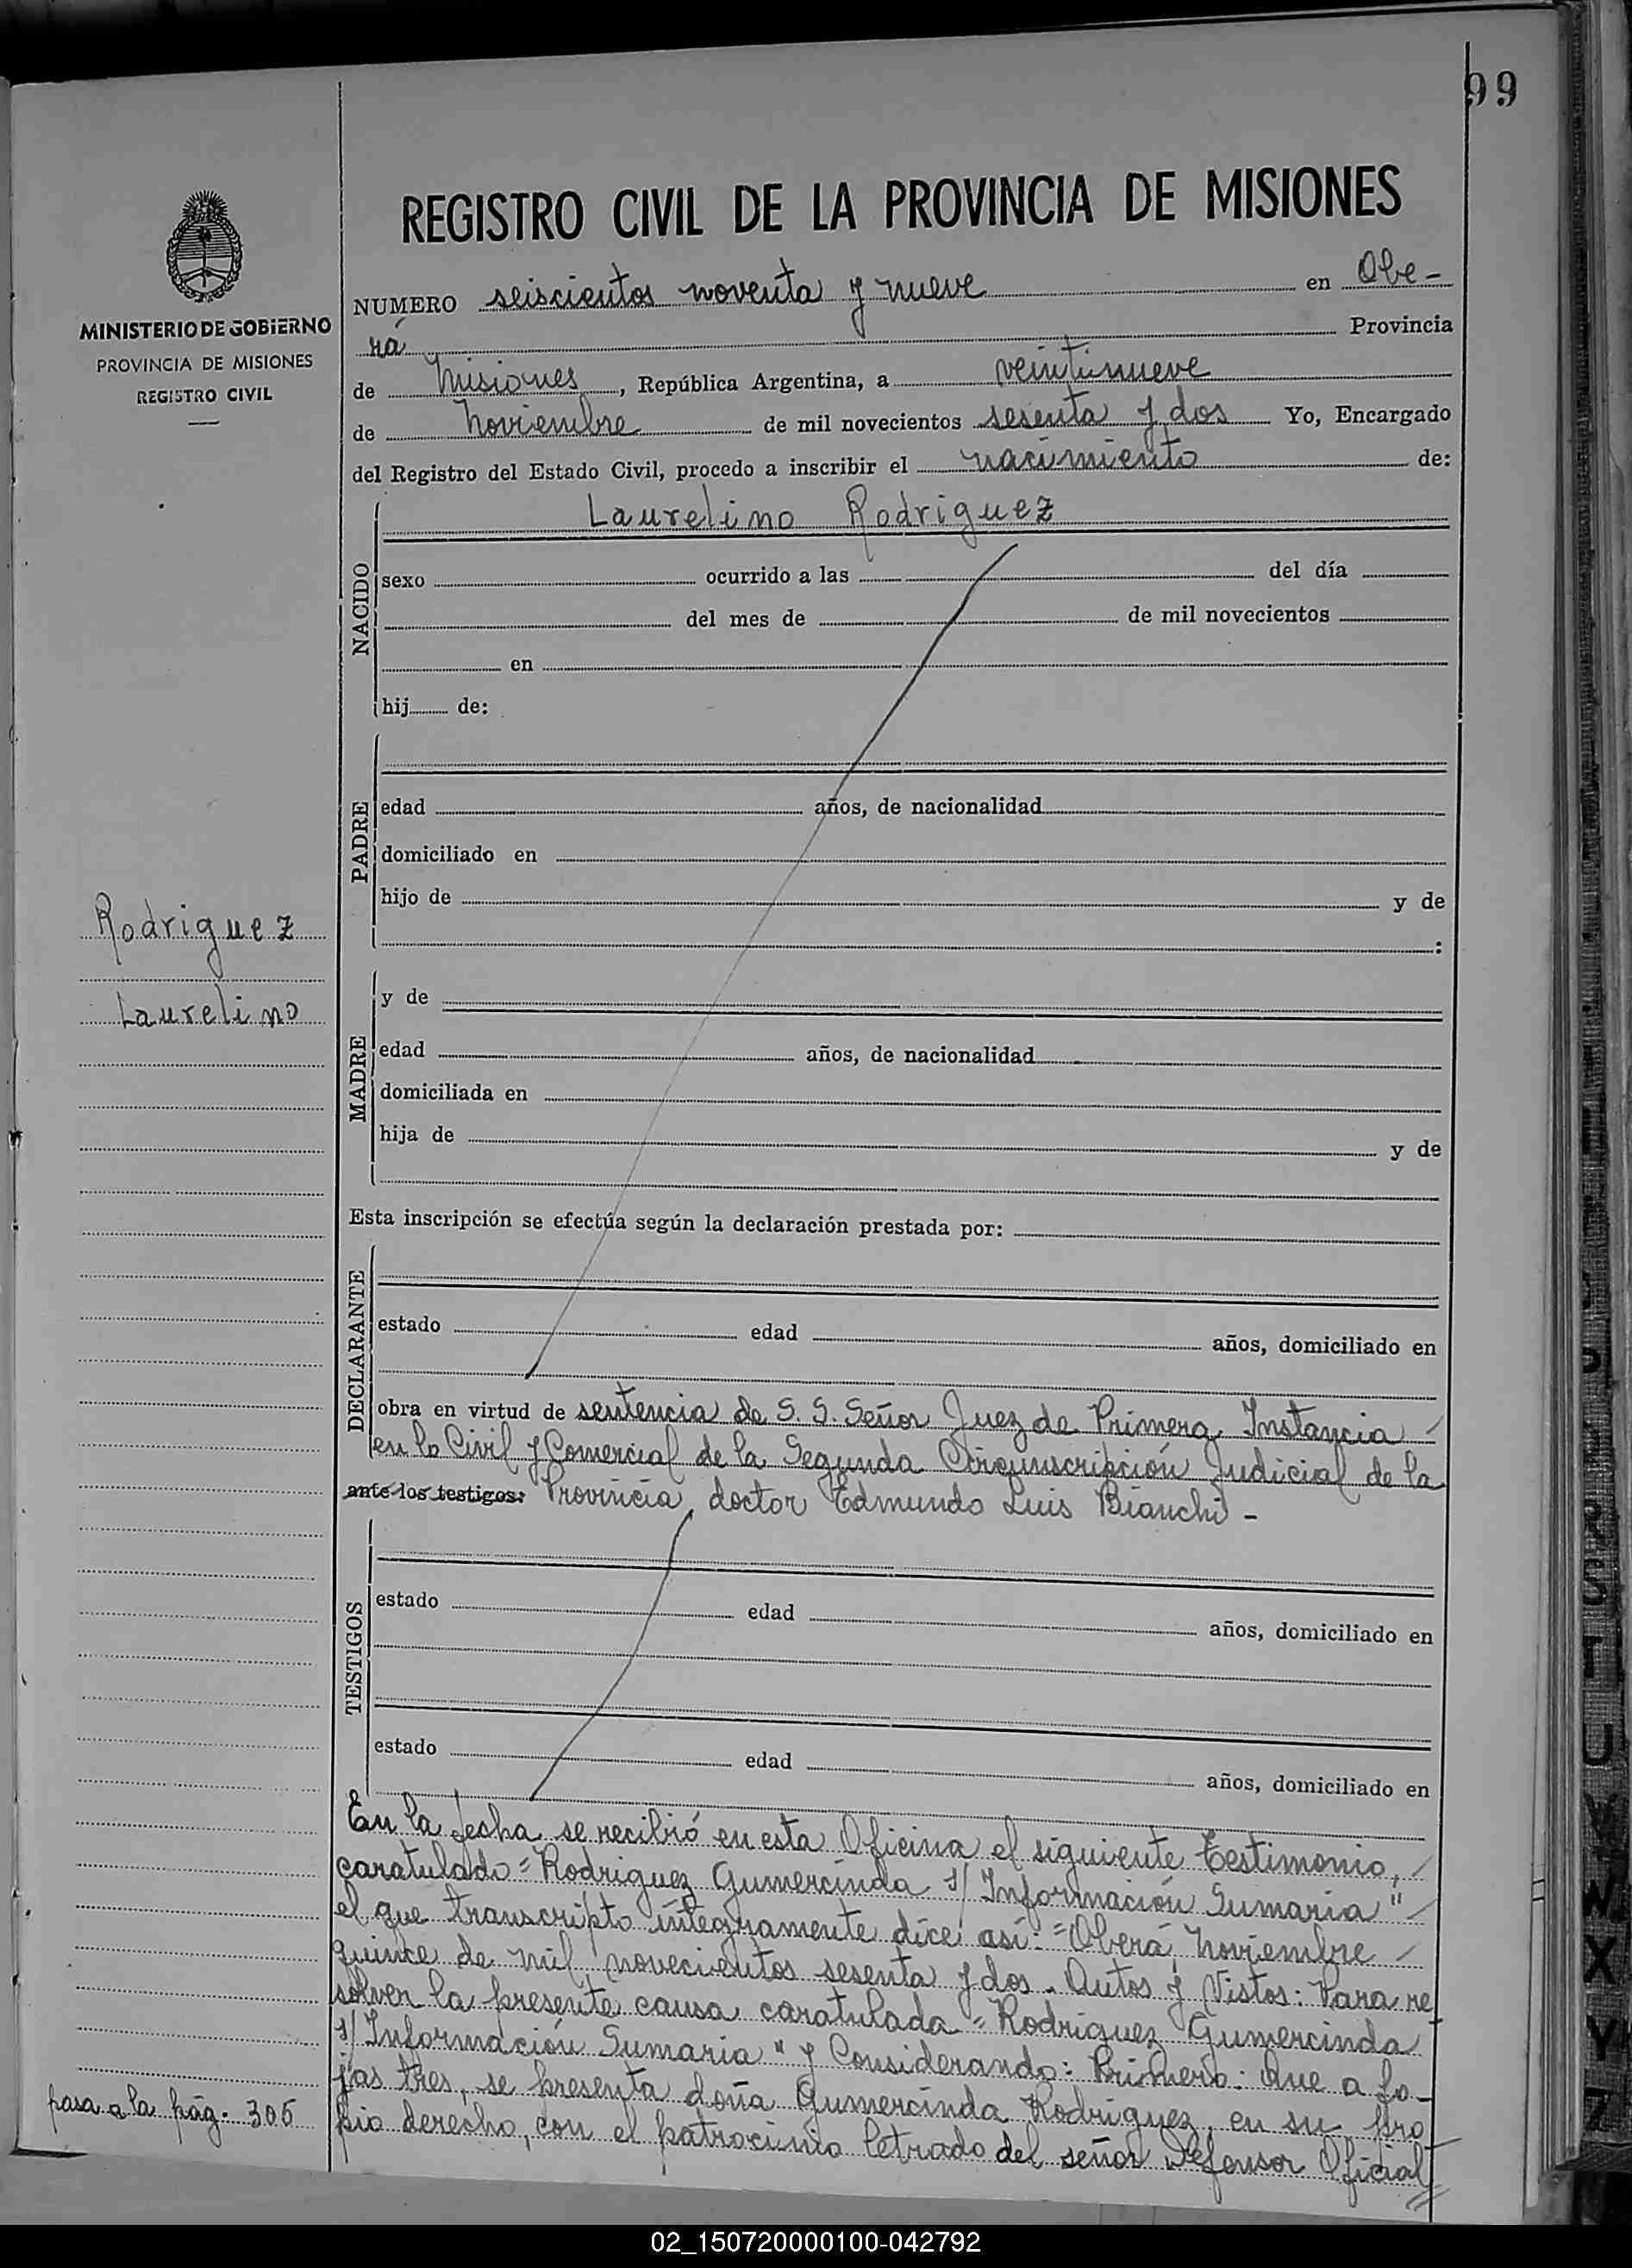 99
REGISTRO CIVIL DE LA PROVINCIA DE MISIONES
MINISTERIO DE GOBIERNO
PROVINCIA DE MISIONES
REGISTRO CIVIL
NUMERO seiscientos noventa y nueve en Obe-
rá Provincia
de Misiones, República Argentina, a veintinueve
de Noviembre de mil novecientos sesenta y dos Yo, Encargado
del Registro del Estado Civil, procedo a inscribir el nacimiento de:
NACIDO
Laurelino Rodriguez
sexo ocurrido a las del día
del mes de de mil novecientos
en
hij de:
PADRE
edad años, de nacionalidad
domiciliado en
hijo de y de
:
Rodriguez
Laurelino
MADRE
y de
edad años, de nacionalidad
domiciliada en
hija de y de
Esta inscripción se efectúa según la declaración prestada por:
DECLARANTE
estado edad años, domiciliado en
obra en virtud de sentencia de S. S. Señor Juez de Primera Instancia
en lo Civil y Comercial de la Segunda Circunscripción Judicial de la
ante los testigos: Provincia, doctor Edmundo Luis Bianchi -
TESTIGOS
estado edad años, domiciliado en
estado edad años, domiciliado en
En la fecha se recibió en esta Oficina el siguiente testimonio,
caratulado = Rodriguez Gumercinda s/ Información Sumaria"
el que transcripto integramente dice así: = Oberá Noviembre
quince de mil novecientos sesenta y dos. Autos y Vistos: Para re
solver la presente causa caratulada = Rodriguez Gumercinda
s/ Información Sumaria" y Considerando: Primero: Que a fo-
jas tres, se presenta doña Gumercinda Rodriguez, en su pro
pio derecho, con el patrocinio letrado del señor Defensor Oficial
pasa a la pág. 305
02_150720000100-042792